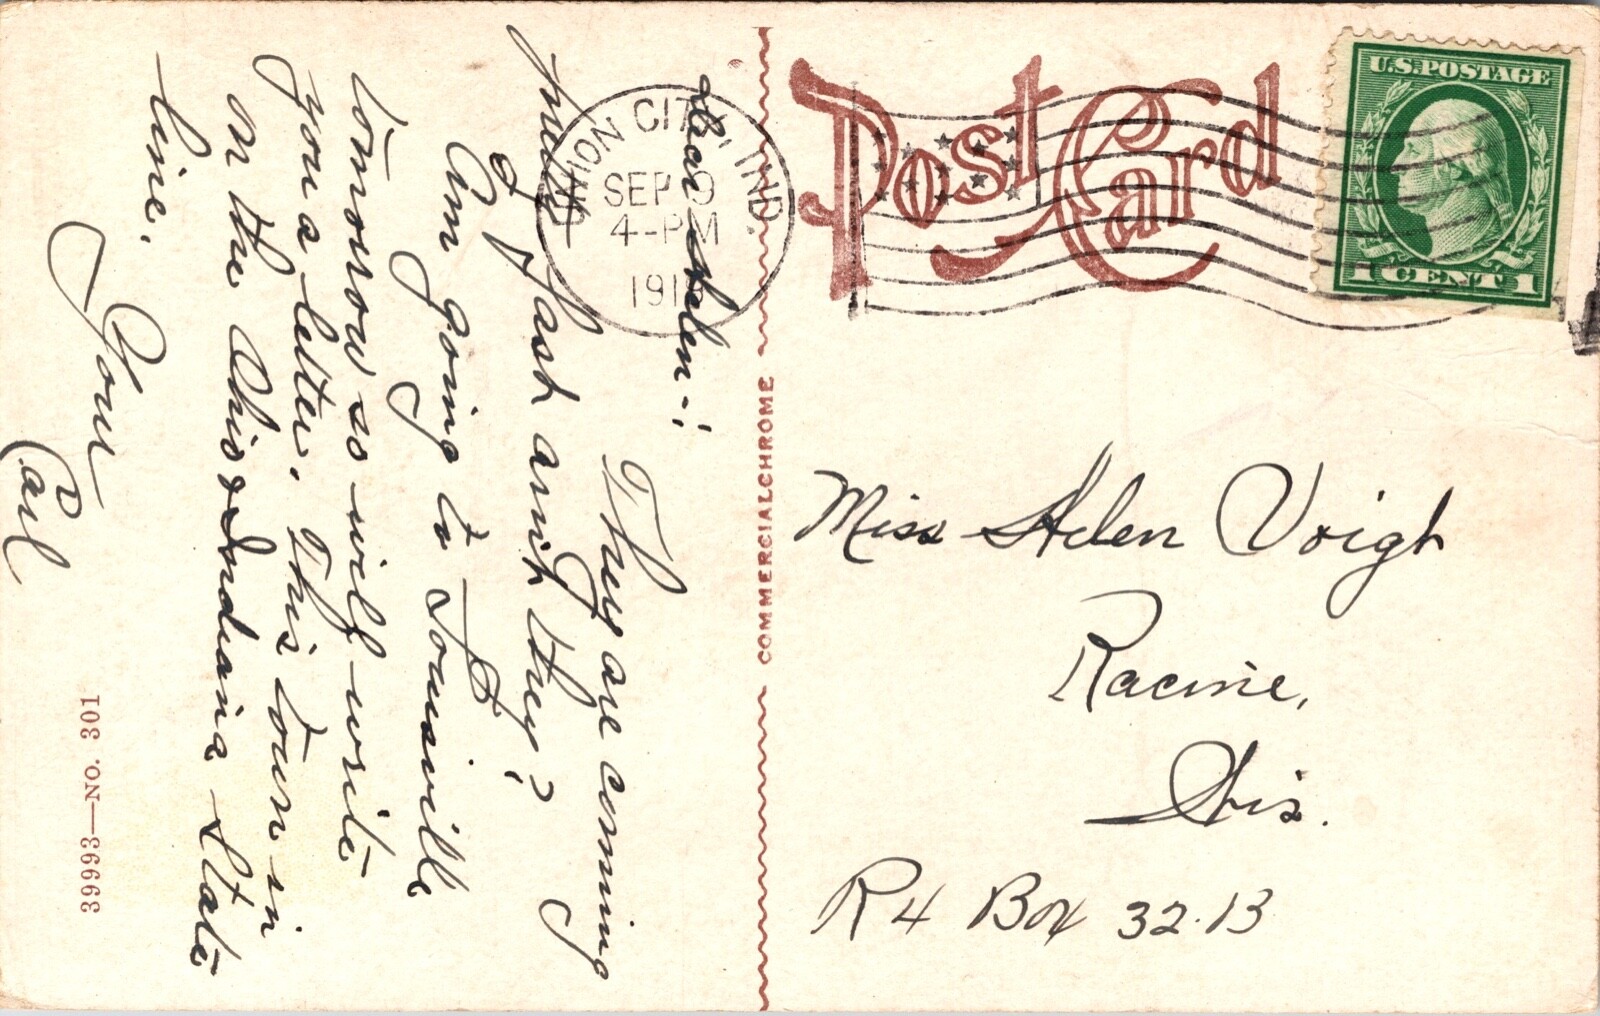 Dear Helen-:
They are coming
pretty fast arn't they?
Am going to Louisville
tomorrow so will write
you a letter. This town in
on the Ohio & Indiana state
line.
Your
Carl
39993—NO. 301
COMMERCIALCHROME
Post Card
UNION CITY, IND.
SEP 9
4-PM
191
U.S. POSTAGE
1 CENT 1
Miss Helen Voigh
Racine,
Wis.
R4 Box 32-B